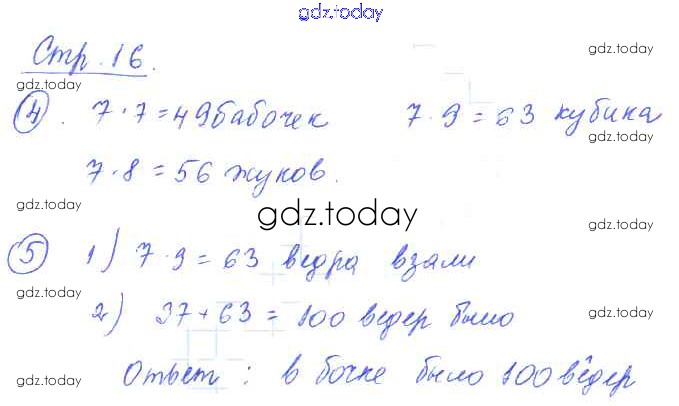 gdz.today
Стр. 16.
gdz.today
gdz.today
④. 7·7=49 бабочек 7·9=63 кубика
gdz.today
7·8=56 жуков.
gdz.today
gdz.today
gdz.today
⑤ 1) 7·9=63 ведра взали
gdz.today
gdz.today
2) 37+63=100 ведер было
gdz.today
gdz.today
Ответ: в бочке было 100 вёдер